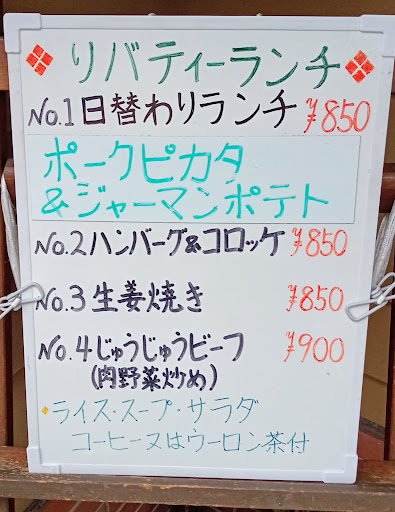 リバティーランチ
No.1日替わりランチ ¥850
ポークピカタ
&ジャーマンポテト
No.2ハンバーグ&コロッケ ¥850
No.3生姜焼き ¥850
No.4じゅうじゅうビーフ ¥900
(肉野菜炒め)
ライス・スープ・サラダ
コーヒー又はウーロン茶付